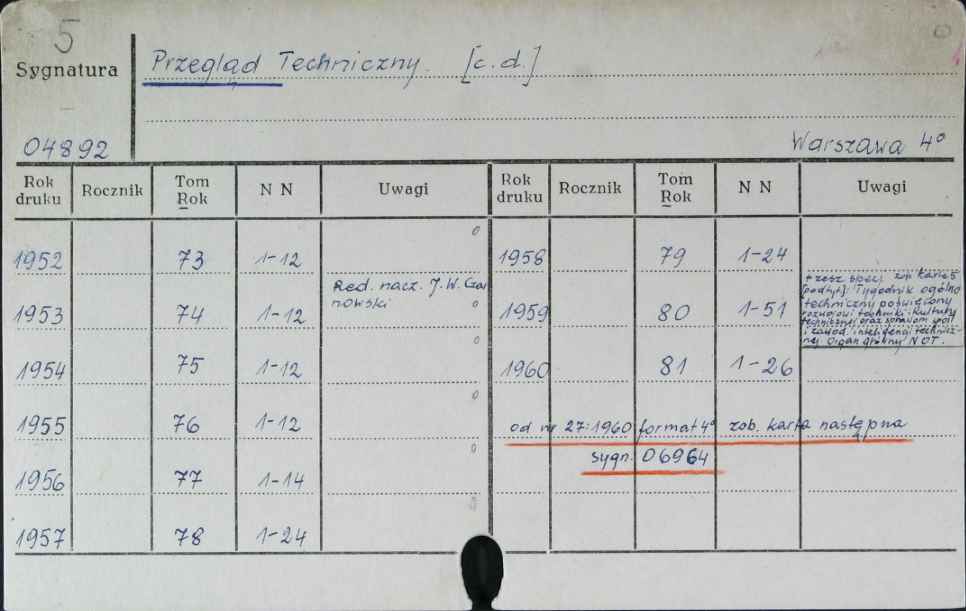 5
Sygnatura
Przegląd Techniczny. [c.d.]
04892
Warszawa 4°
Rok druku Rocznik Tom Rok N N Uwagi Rok druku Rocznik Tom Rok N N Uwagi
1952 73 1-12 o 1958 79 1-24
1953 74 1-12 Red. nacz. J. W. Czar
nowski o 1959 80 1-51
+ zesz. spec. zob. karta 5
[podtyt.]: Tygodnik ogólno
techniczny poświęcony
rozwojowi techniki i kultury
technicznej oraz sprawom
i zawod. inteligencji technicz-
nej. Organ główny NOT.
1954 75 1-12 o 1960 81 1-26
1955 76 1-12 o od nr 27:1960 format 4° zob. karta następna
sygn. 06964
1956 77 1-14 o
1957 78 1-24